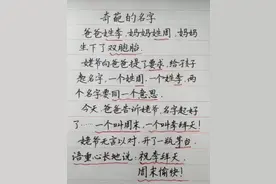 奇葩的名字
爸爸姓李，妈妈姓周，妈妈
生下了双胞胎.
姥爷向爸爸提了要求，给孩子
起名字，一个姓周，一个姓李，两
个名字要同一个意思.
今天，爸爸告诉姥爷，名字起好
了……一个叫周末，一个叫李拜天!
姥爷无言以对，开了一瓶茅台，
语重心长地说：祝李拜天，
周末愉快!